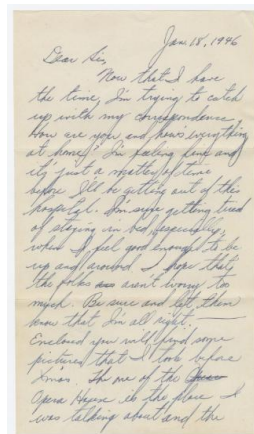 Jan. 18, 1946
Dear Sis,
Now that I have
the time, I'm trying to catch
up with my correspondence.
How are you and hows everything
at home? I'm feeling fine and
it's just a matter of time
before I'll be getting out of this
hospital. I'm sure getting tired
of staying in bed especially,
when I feel good enough to be
up and around. I hope that
the folks aren't worry too
much. Be sure and let them
know that I'm all right.
Enclosed you will find some
pictures that I took before
Xmas. The one of the
Opera House is the place I
was talking about and the